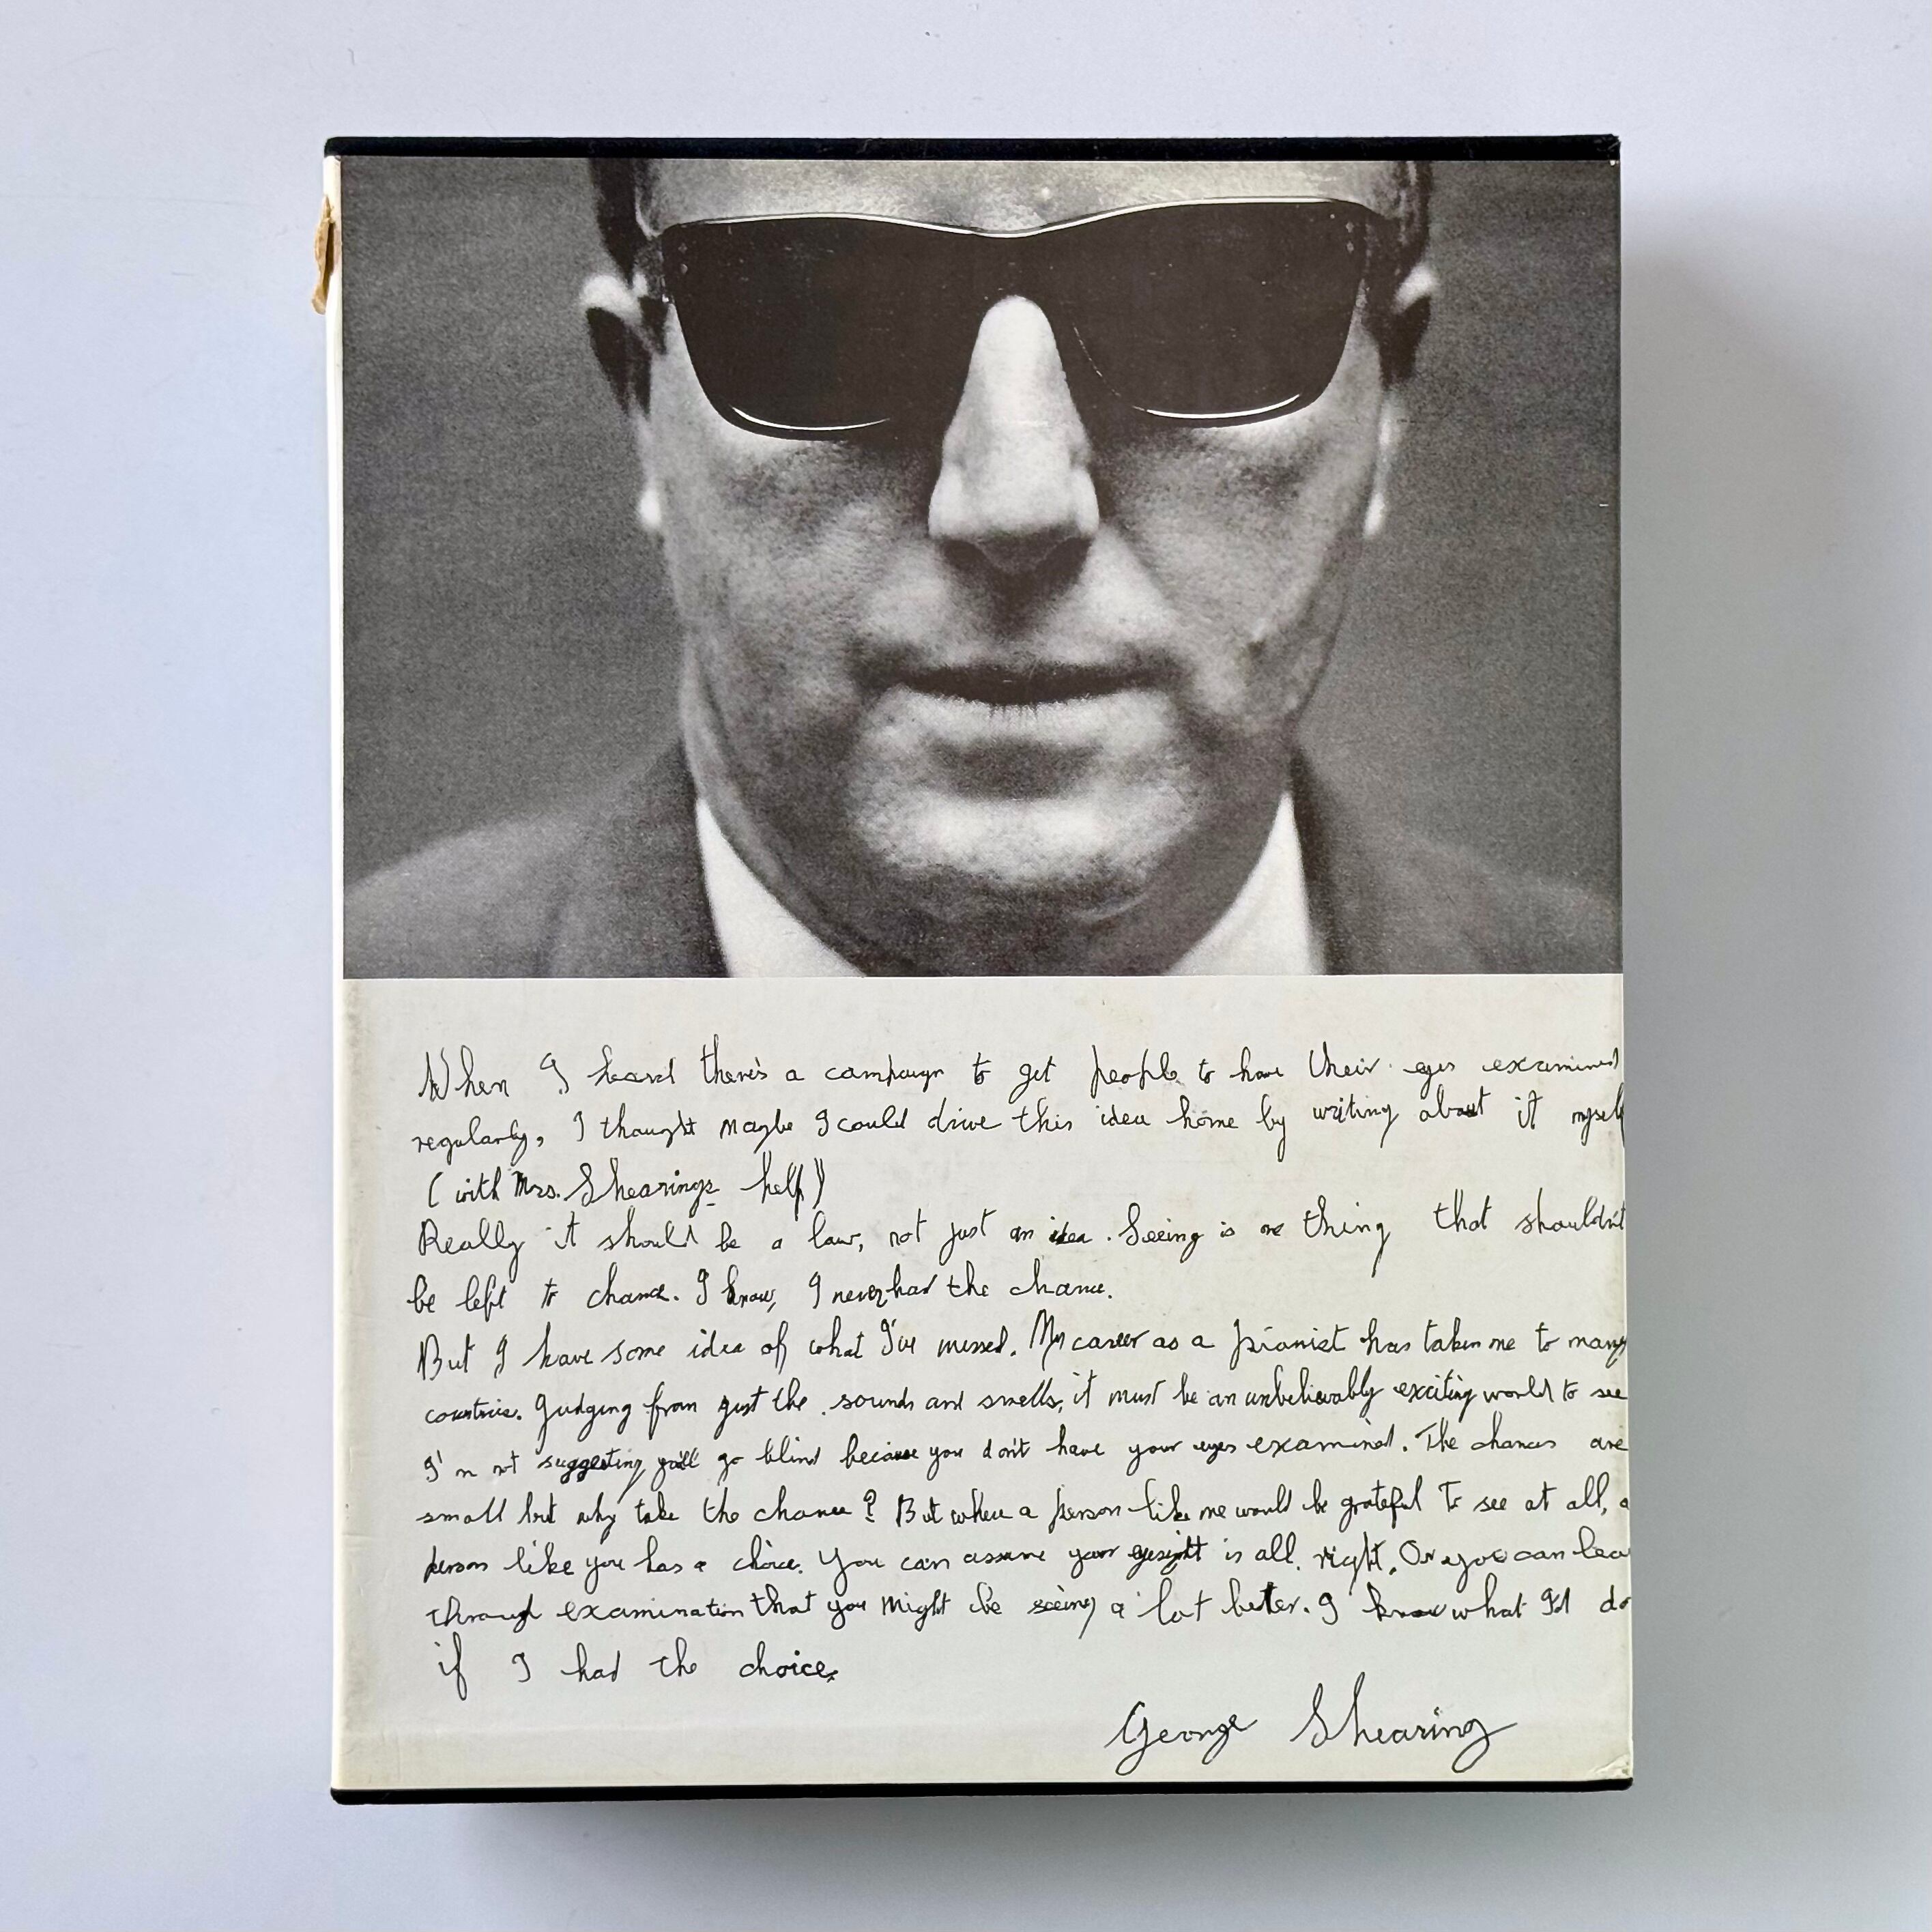 When I heard there's a campaign to get people to have their eyes examined
regularly, I thought maybe I could drive this idea home by writing about it myself
(with Mrs. Shearings help)
Really it should be a law, not just an idea. Seeing is one thing that shouldn't
be left to chance. I know, I never had the chance.
But I have some idea of what I've missed. My career as a pianist has taken me to many
countries. Judging from just the sounds and smells, it must be an unbelievably exciting world to see
I'm not suggesting you'll go blind because you don't have your eyes examined. The chances are
small but why take the chance? But where a person like me would be grateful to see at all, a
person like you has a choice. You can assume your eyesight is all right. Or you can lea
through examination that you might be seeing a lot better. I know what I'd do
if I had the choice.
George Shearing